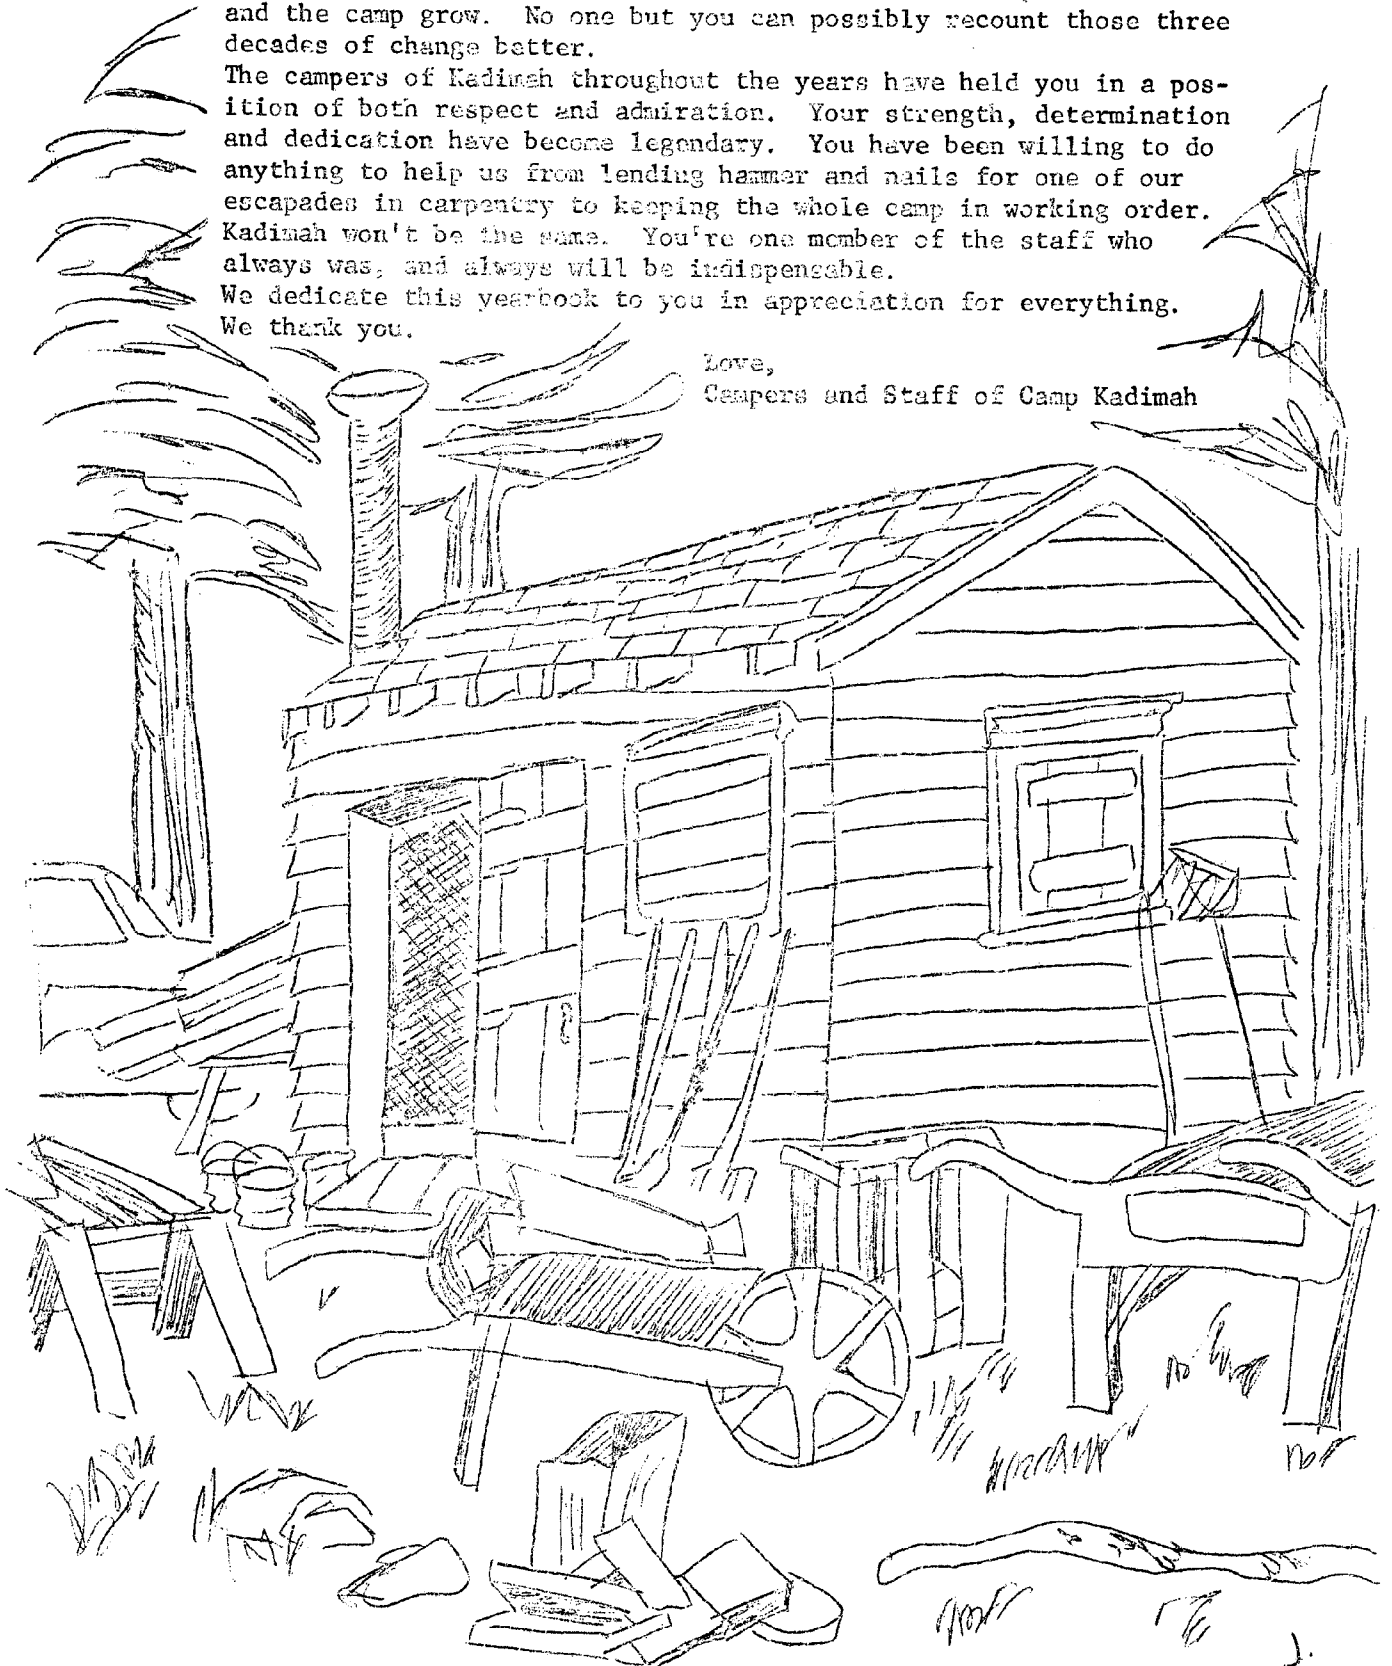 and the camp grow. No one but you can possibly recount those three
decades of change better.
The campers of Kadimah throughout the years have held you in a pos-
ition of both respect and admiration. Your strength, determination
and dedication have become legendary. You have been willing to do
anything to help us from lending hammer and nails for one of our
escapades in carpentry to keeping the whole camp in working order.
Kadimah won't be the same. You're one member of the staff who
always was, and always will be indispensable.
We dedicate this yearbook to you in appreciation for everything.
We thank you.
Love,
Campers and Staff of Camp Kadimah
J.